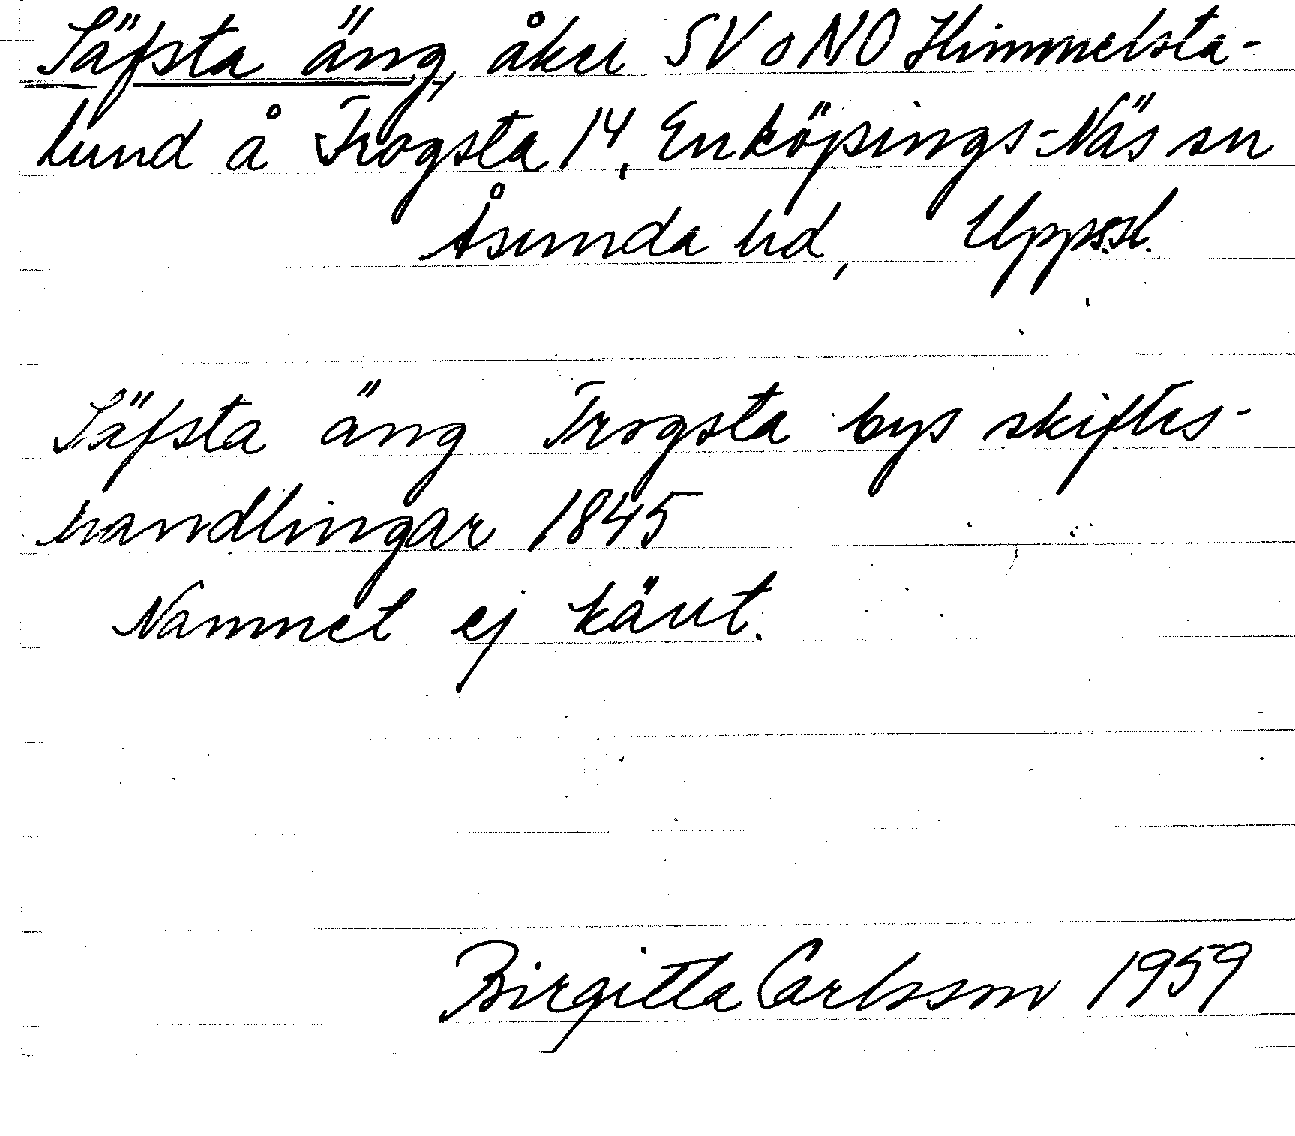 Säfsta äng, åker SV o NO Himmelsta-
lund å Trogsta 14, Enköpings-Näs sn
Åsunda hd, Uppsl.
Säfsta äng Trogsta bys skiftes-
handlingar 1845
Namnet ej känt.
Birgitta Carlsson 1959